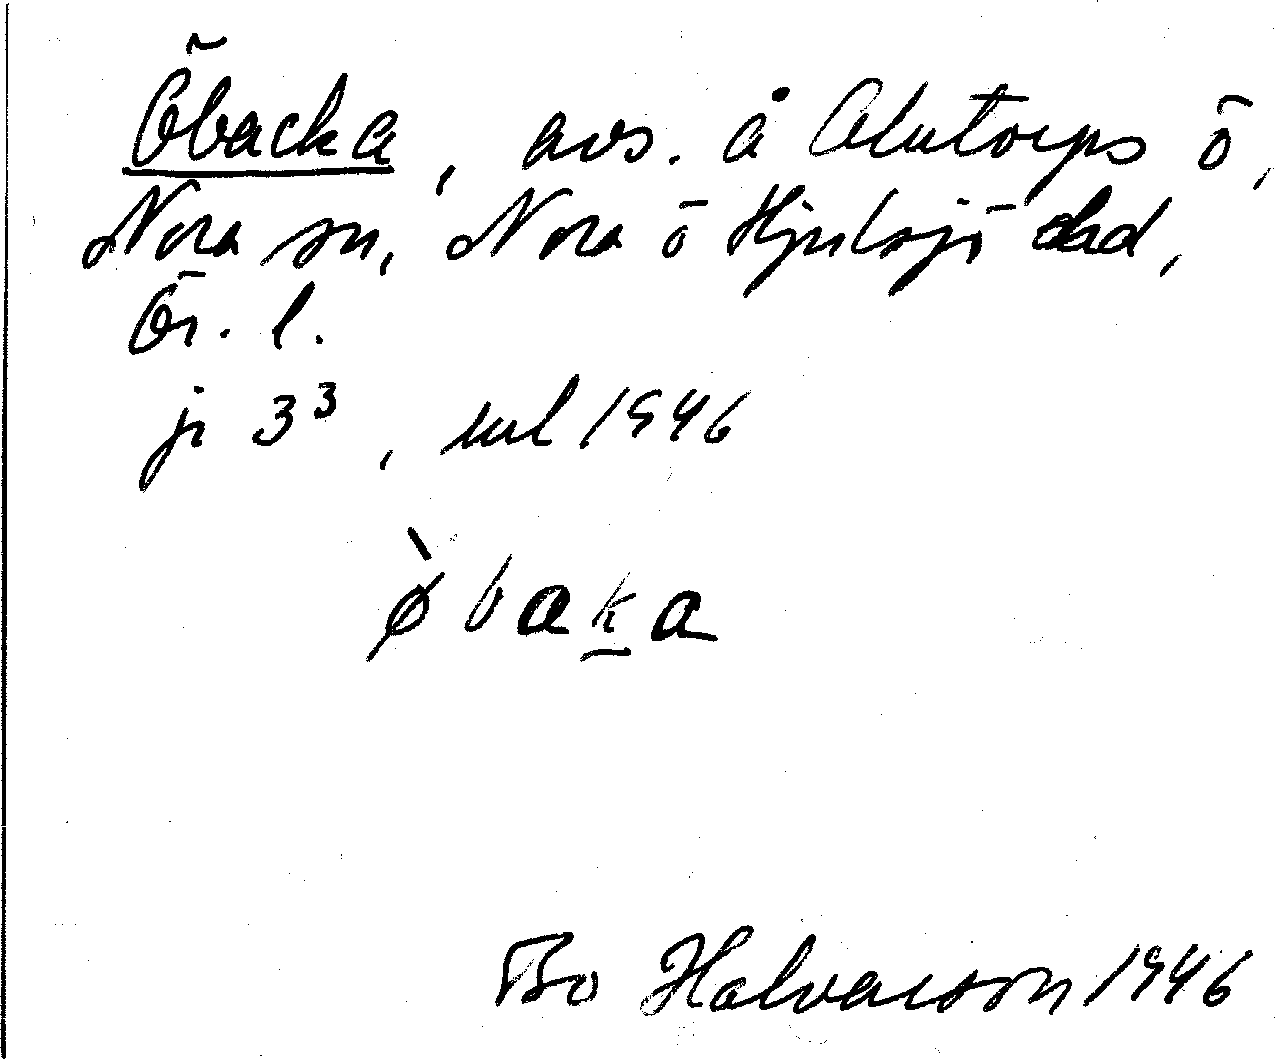 Öbacka, avs. å Alntorps ö,
Nora sn, Nora o Hjulsjö hd,
Ör. l.
ji 3³, ml 1946
ø̀baka
Bo Halvarson 1946